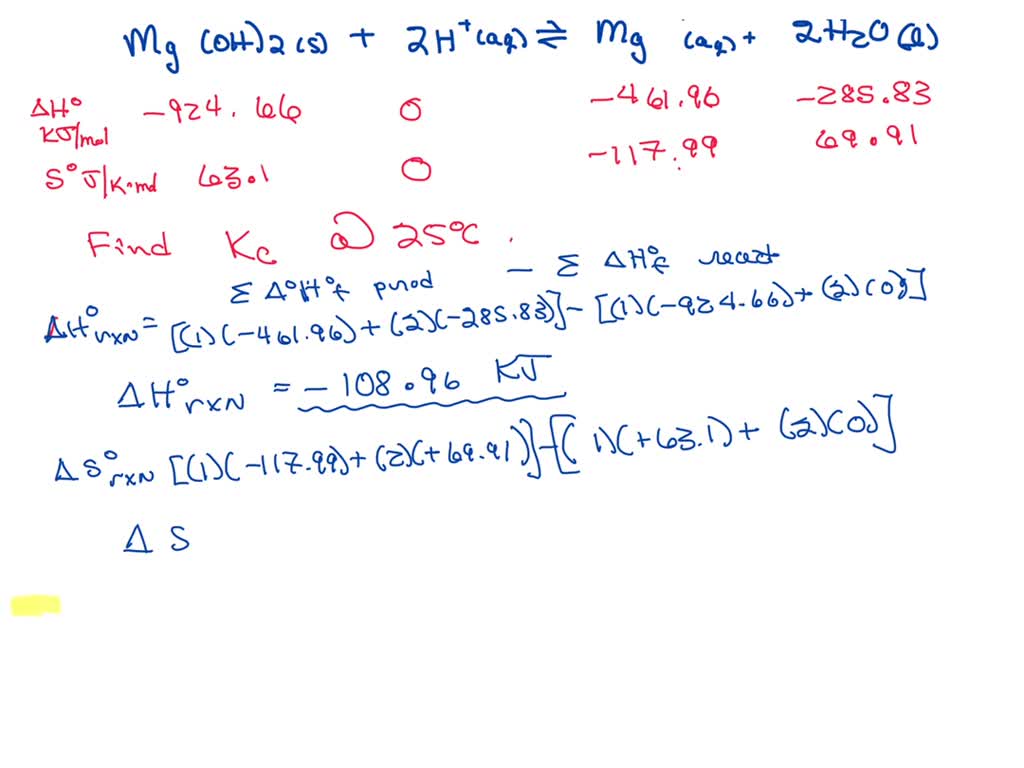 Mg (OH)2 (s) + 2H⁺ (aq) ⇌ Mg (aq) + 2H2O (l)
ΔH° KJ/mol -924.66 0 -461.96 -285.83
S° J/K·mol 63.1 0 -117.99 69.91
Find Kc @ 25°C.
Σ Δ°H°f prod - Σ ΔH°f react
ΔH°rxn = [(1)(-461.96) + (2)(-285.83)] - [(1)(-924.66) + (2)(0)]
ΔH°rxn = -108.96 KJ
ΔS°rxn [(1)(-117.99) + (2)(+69.91)] - [(1)(+63.1) + (2)(0)]
Δ S